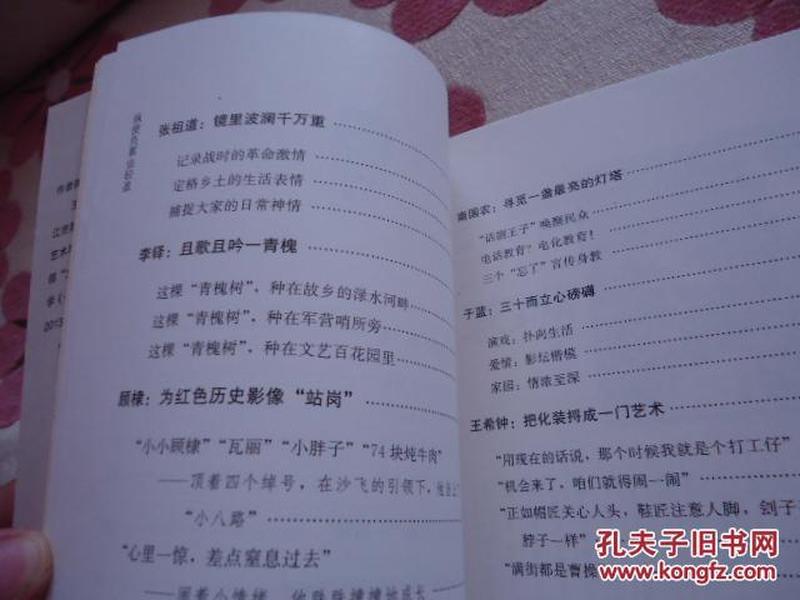 张祖道：镜里波澜千万重
记录战时的革命激情
定格乡土的生活表情
捕捉大家的日常神情
李铎：且歌且吟一青槐
这棵“青槐树”，种在故乡的渌水河畔
这棵“青槐树”，种在军营哨所旁
这棵“青槐树”，种在文艺百花园里
顾棣：为红色历史影像“站岗”
“小小顾棣”“瓦丽”“小胖子”“74块炖牛肉”
——顶着四个绰号，在沙飞的引领下，
“小八路”
“心里一惊，差点窒息过去”
南国农：寻觅一盏最亮的灯塔
“话剧王子”唤醒民众
电话教育？电化教育！
三个“忘了”言传身教
于蓝：三十而立心磅礴
演戏：扑向生活
爱情：影坛楷模
家园：情浓至深
王希钟：把化装捋成一门艺术
“用现在的话说，那个时候我就是个打工仔”
“机会来了，咱们就得闹一闹”
“正如帽匠关心人头，鞋匠注意人脚，刽子
脖子一样”
“满街都是曹操
孔夫子旧书网
www.kongfz.com